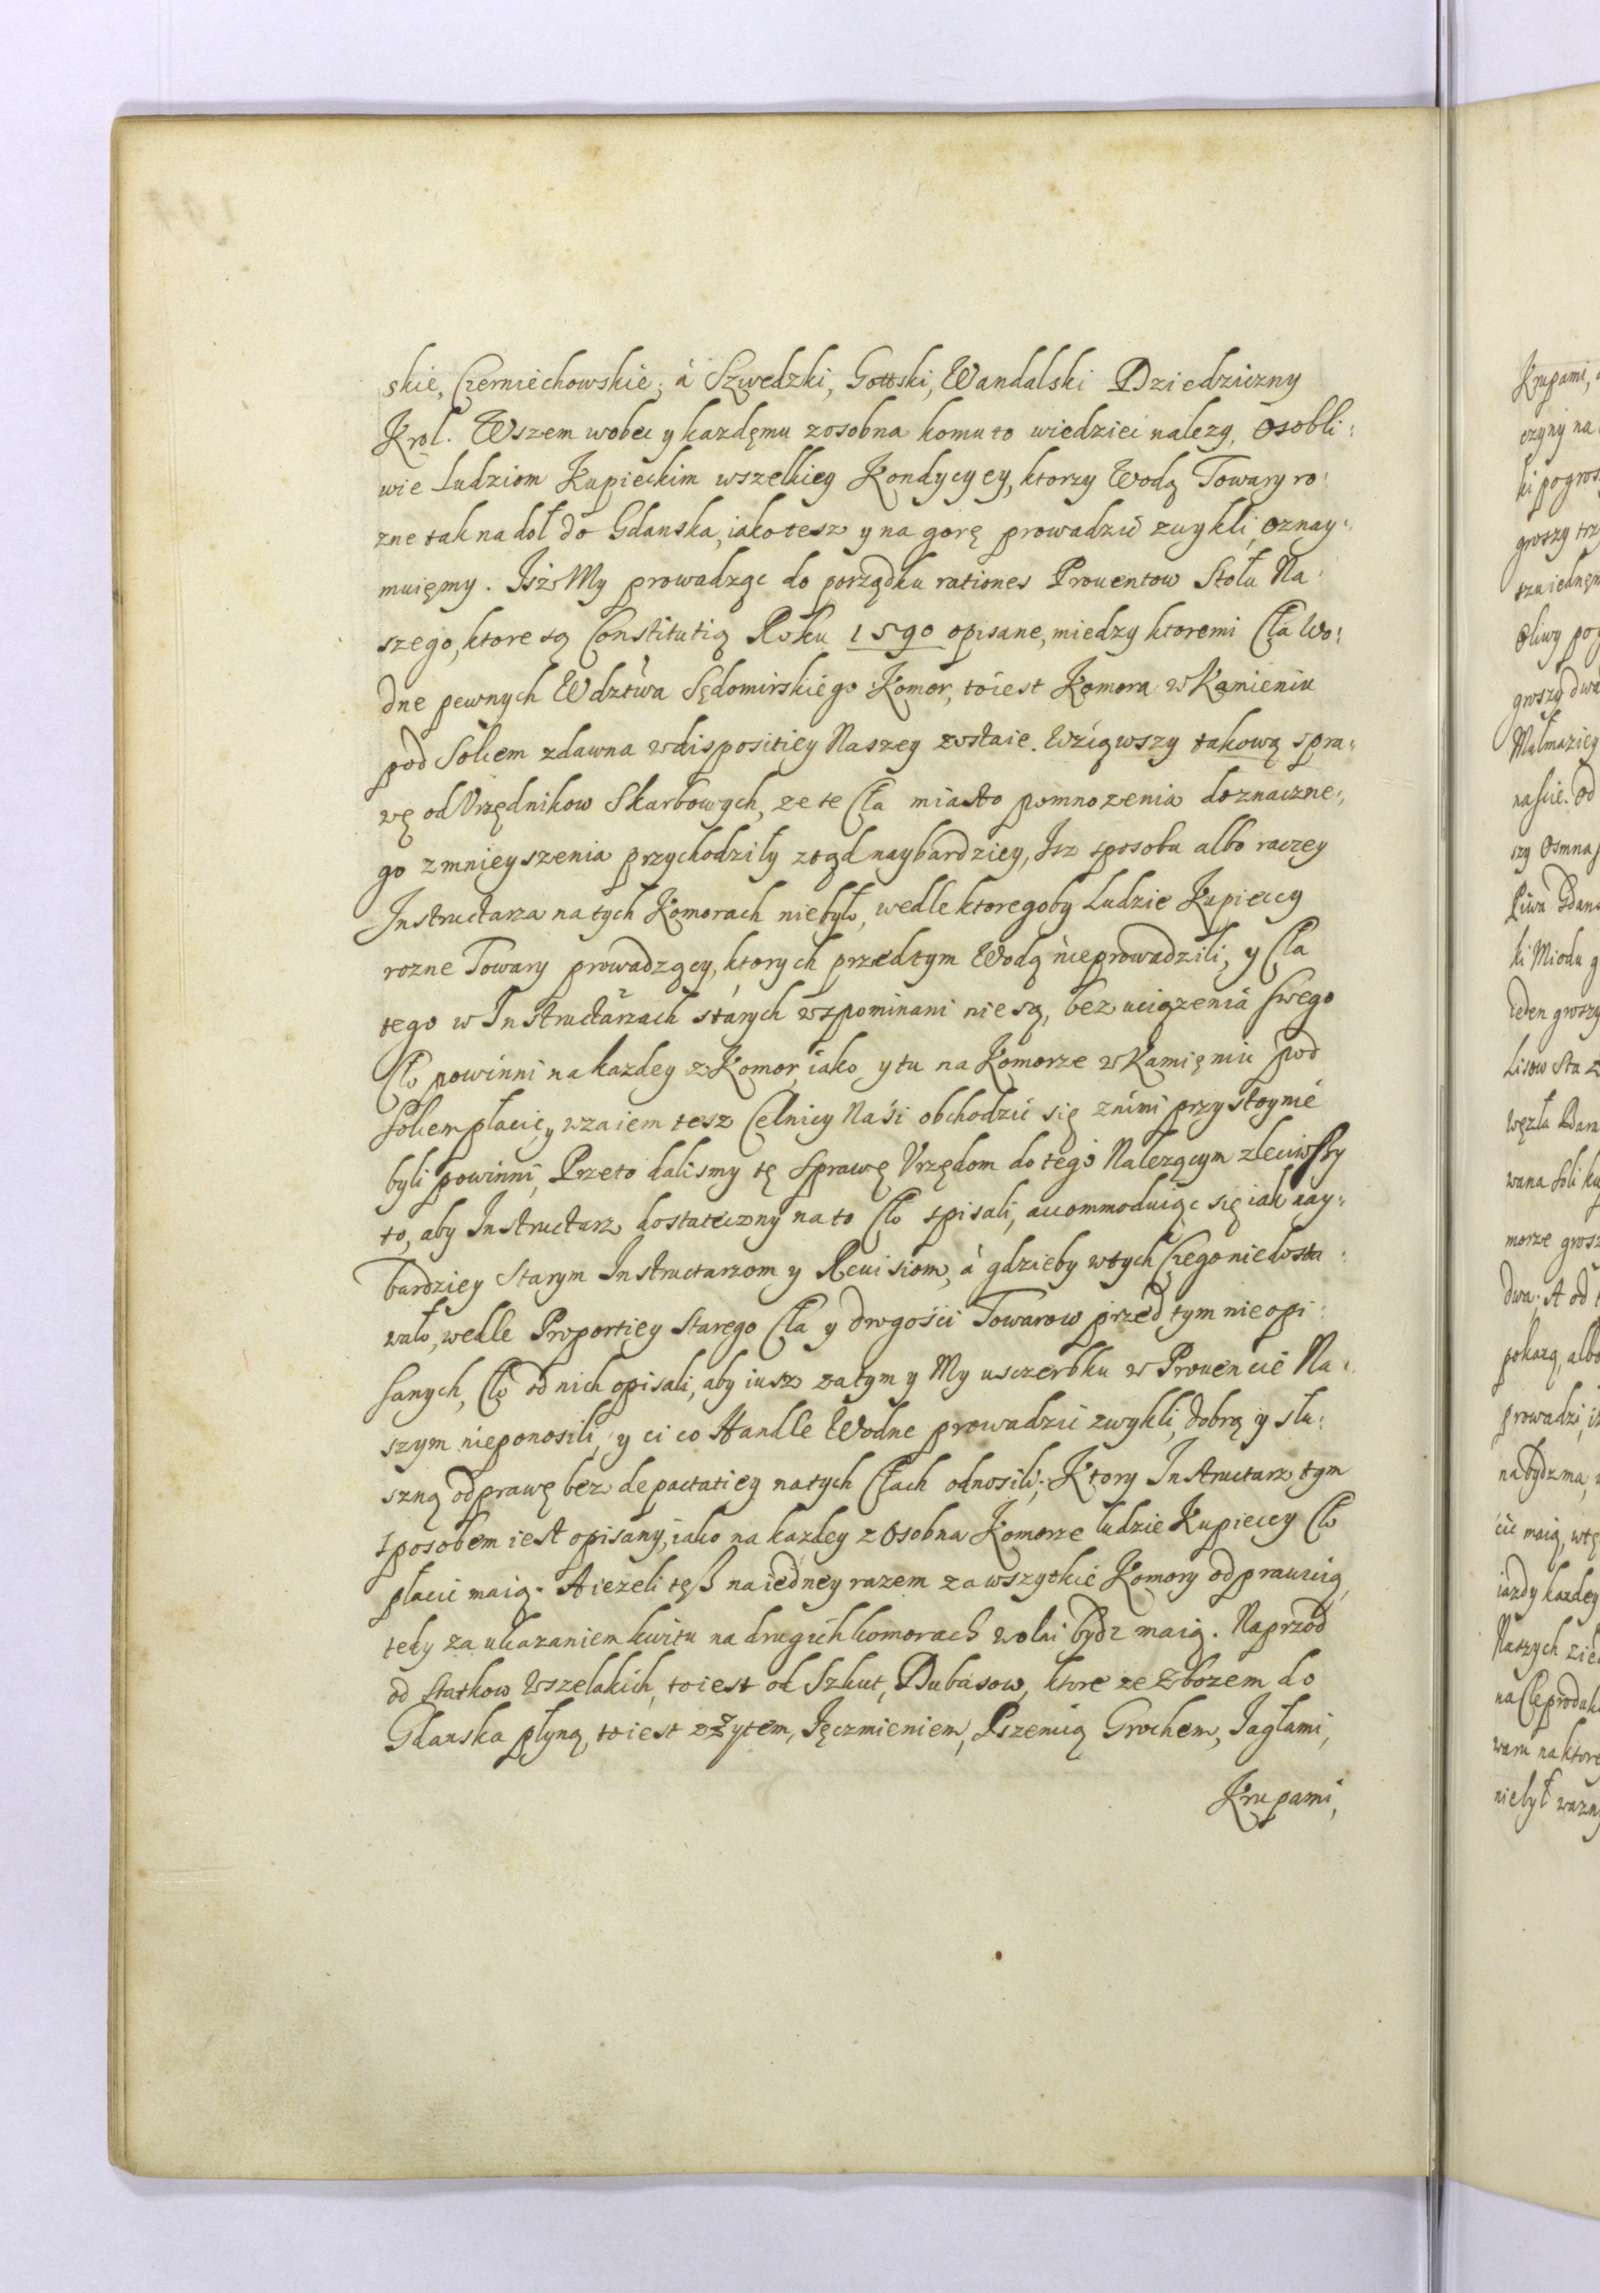 skie, Czerniechowskie; á Szwedzki, Gottski, Wandalski Dziedziczny
Krol. Wszem wobec y kazdęmu zosobna komu to wiedziec nalezy, Osobli:
wie Ludziom Kupieckim wszelkiey Kondycyey, ktorzy Wodą Towary ro:
zne tak na doł do Gdanska, iako tesz y na gorę prowadzić zwykli, Oznay:
muięmy. Isż My prowadząc do porządku rationes Prouentow Stołu Na:
szego, ktore są Constitutią Roku 1590 opisane, miedzy ktoremi Cła Wo:
dne pewnych Wdztwa Sędomirskiego Komor, to iest Komora w Kamieniu
pod Solcem zdawna w dispositiey Naszey zostaie. Wziąwszy takową spra:
wę od Vrzędnikow Skarbowych, ze te Cła miasto pomnozenia do znaczne:
go zmnieyszenia przychodziły ztąd naybardziey, Isz sposobu albo raczey
Instructarza na tych Komorach niebyło, wedle ktoregoby Ludzie Kupieccy
rozne Towary prowadzący, ktorych przedtym Wodą nieprowadzili, y Cła
tego w Instructarzach starych wzpominani nie są, bez uciązenia swego
Cło powinni na kazdey z Komor, iako y tu na Komorze w Kamięniu pod
Solcem płacić, y wzaiem tesz Celnicy Naśi obchodzić się z nimi przystoynie
byli powinni, Przeto dalismy tę Sprawę Vrzędom do tego Nalezącym zleciwszy
to, aby Instructarz dostateczny na to Cło spisali, accommoduiąc się iak nay:
bardziey Starym Instructarzom y Reuisiom, á gdzieby w tych Czego niedosta:
wało, wedle Proportiey Starego Cła y drogości Towarow przed tym nie opi:
sanych, Cło od nich opisali, aby iusz zatym y My usczerbku w Prouencie Na:
szym nieponosili, y ci co Handle Wodne prowadzić zwykli, dobrą y słu:
szną odprawę bez depactatiey na tych Cłach odnosili; Ktory Instructarz tym
sposobem iest opisany, iako na kazdey z Osobna Komorze ludzie Kupieccy Cło
płacić maią. A iezeli tesz na iedney razem za wszytkie Komory odprawuią,
tedy za ukazaniem kwitu na drugich komorach wolni bydz maią. Naprzod
od Statkow Wszelakich, to iest od Szkut, Dubasow, ktore ze Zbozem do
Gdanska płyną, to iest z Zytem, Ięczmieniem, Pszenicą Grochem, Iagłami,
Krupami,